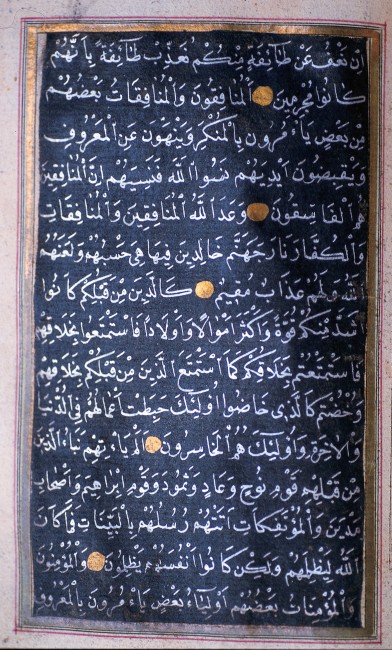 ان نعف عن طائفة منكم نعذب طائفة بانهم
كانوا مجرمين المنافقون والمنافقات بعضهم
من بعض يأمرون بالمنكر وينهون عن المعروف
ويقبضون ايديهم نسوا الله فنسيهم ان المنافقين
هم الفاسقون وعد الله المنافقين والمنافقات
والكفار نار جهنم خالدين فيها هي حسبهم ولعنهم
الله ولهم عذاب مقيم كالذين من قبلكم كانوا
اشد منكم قوة واكثر اموالا واولادا فاستمتعوا بخلاقهم
فاستمتعتم بخلاقكم كما استمتع الذين من قبلكم بخلاقهم
وخضتم كالذي خاضوا اولئك حبطت اعمالهم في الدنيا
والاخرة واولئك هم الخاسرون الم يأتهم نبأ الذين
من قبلهم قوم نوح وعاد وثمود وقوم ابراهيم واصحاب
مدين والمؤتفكات اتتهم رسلهم بالبينات فما كان
الله ليظلمهم ولكن كانوا انفسهم يظلمون والمؤمنون
والمؤمنات بعضهم اولياء بعض يأمرون بالمعروف